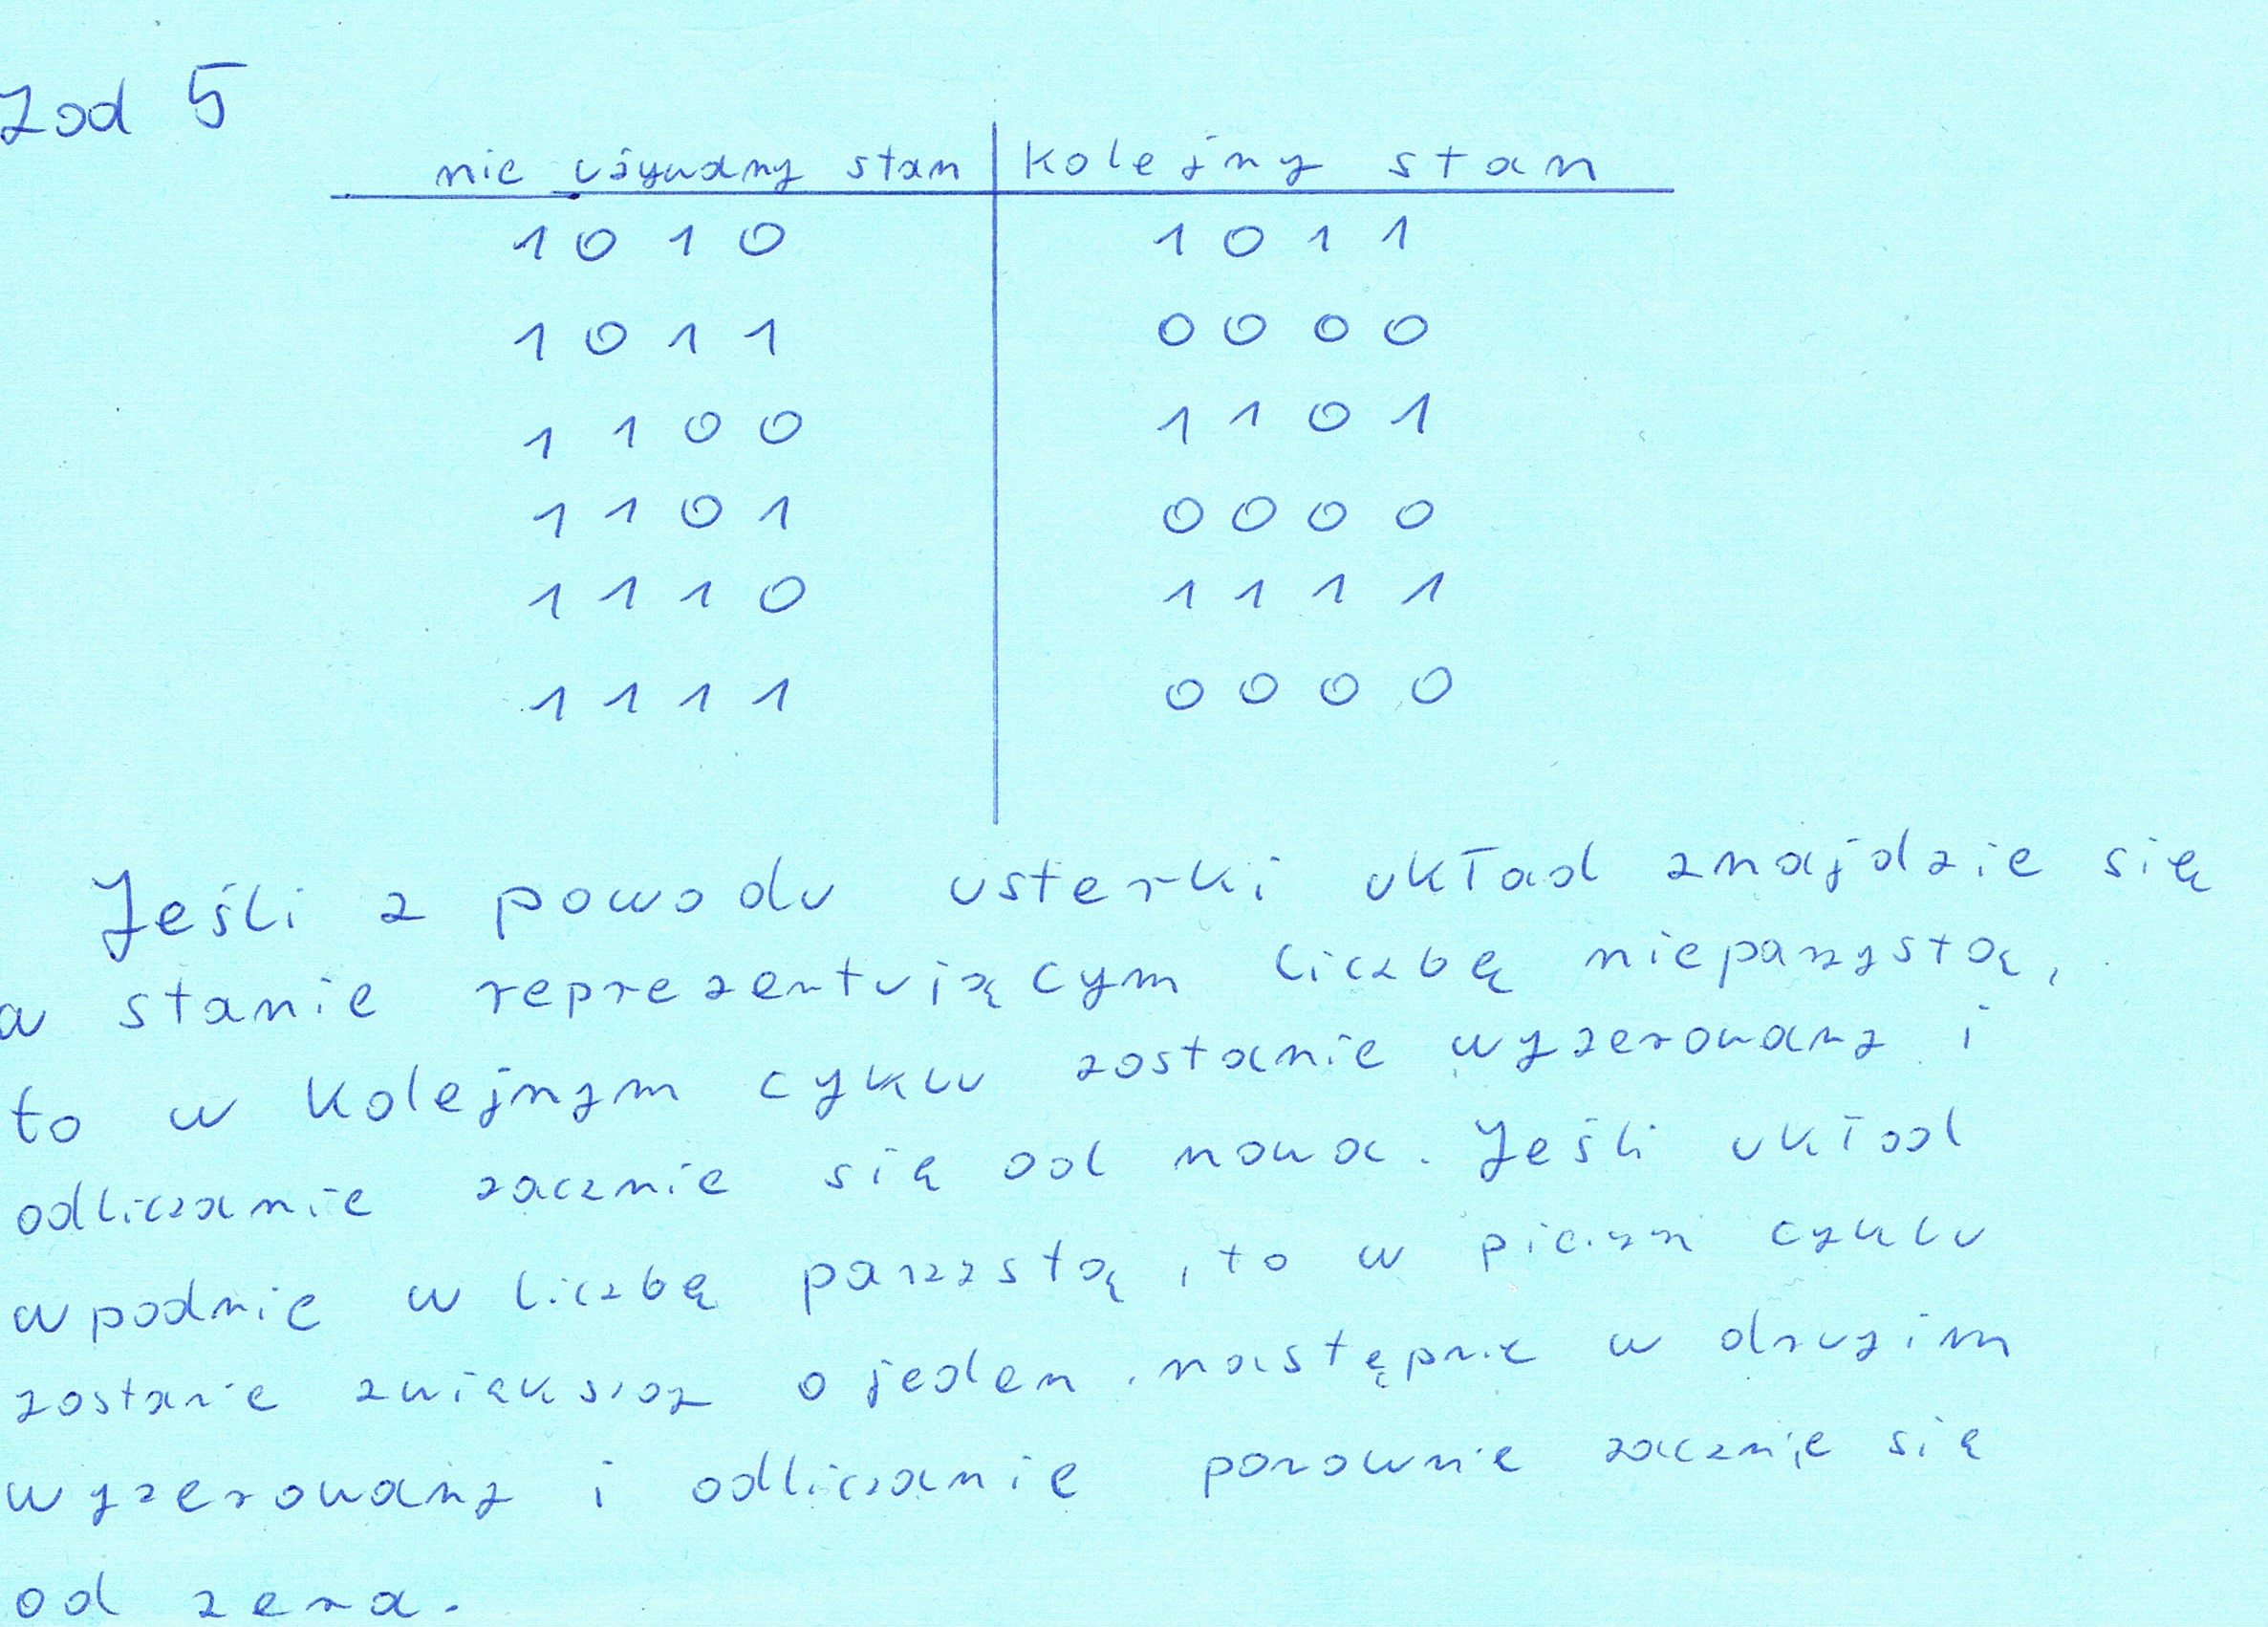 Zad 5
nie używany stan | kolejny stan
1 0 1 0 | 1 0 1 1
1 0 1 1 | 0 0 0 0
1 1 0 0 | 1 1 0 1
1 1 0 1 | 0 0 0 0
1 1 1 0 | 1 1 1 1
1 1 1 1 | 0 0 0 0
Jeśli z powodu usterki układ znajdzie się
w stanie reprezentującym liczbę nieparzystą,
to w kolejnym cyklu zostanie wyzerowany i
odliczanie zacznie się od nowa. Jeśli układ
wpadnie w liczbę parzystą, to w cyklu
zostanie zwiększoy o jeden, następnie w drugim
wyzerowany i odliczanie ponownie zacznie się
od zera.